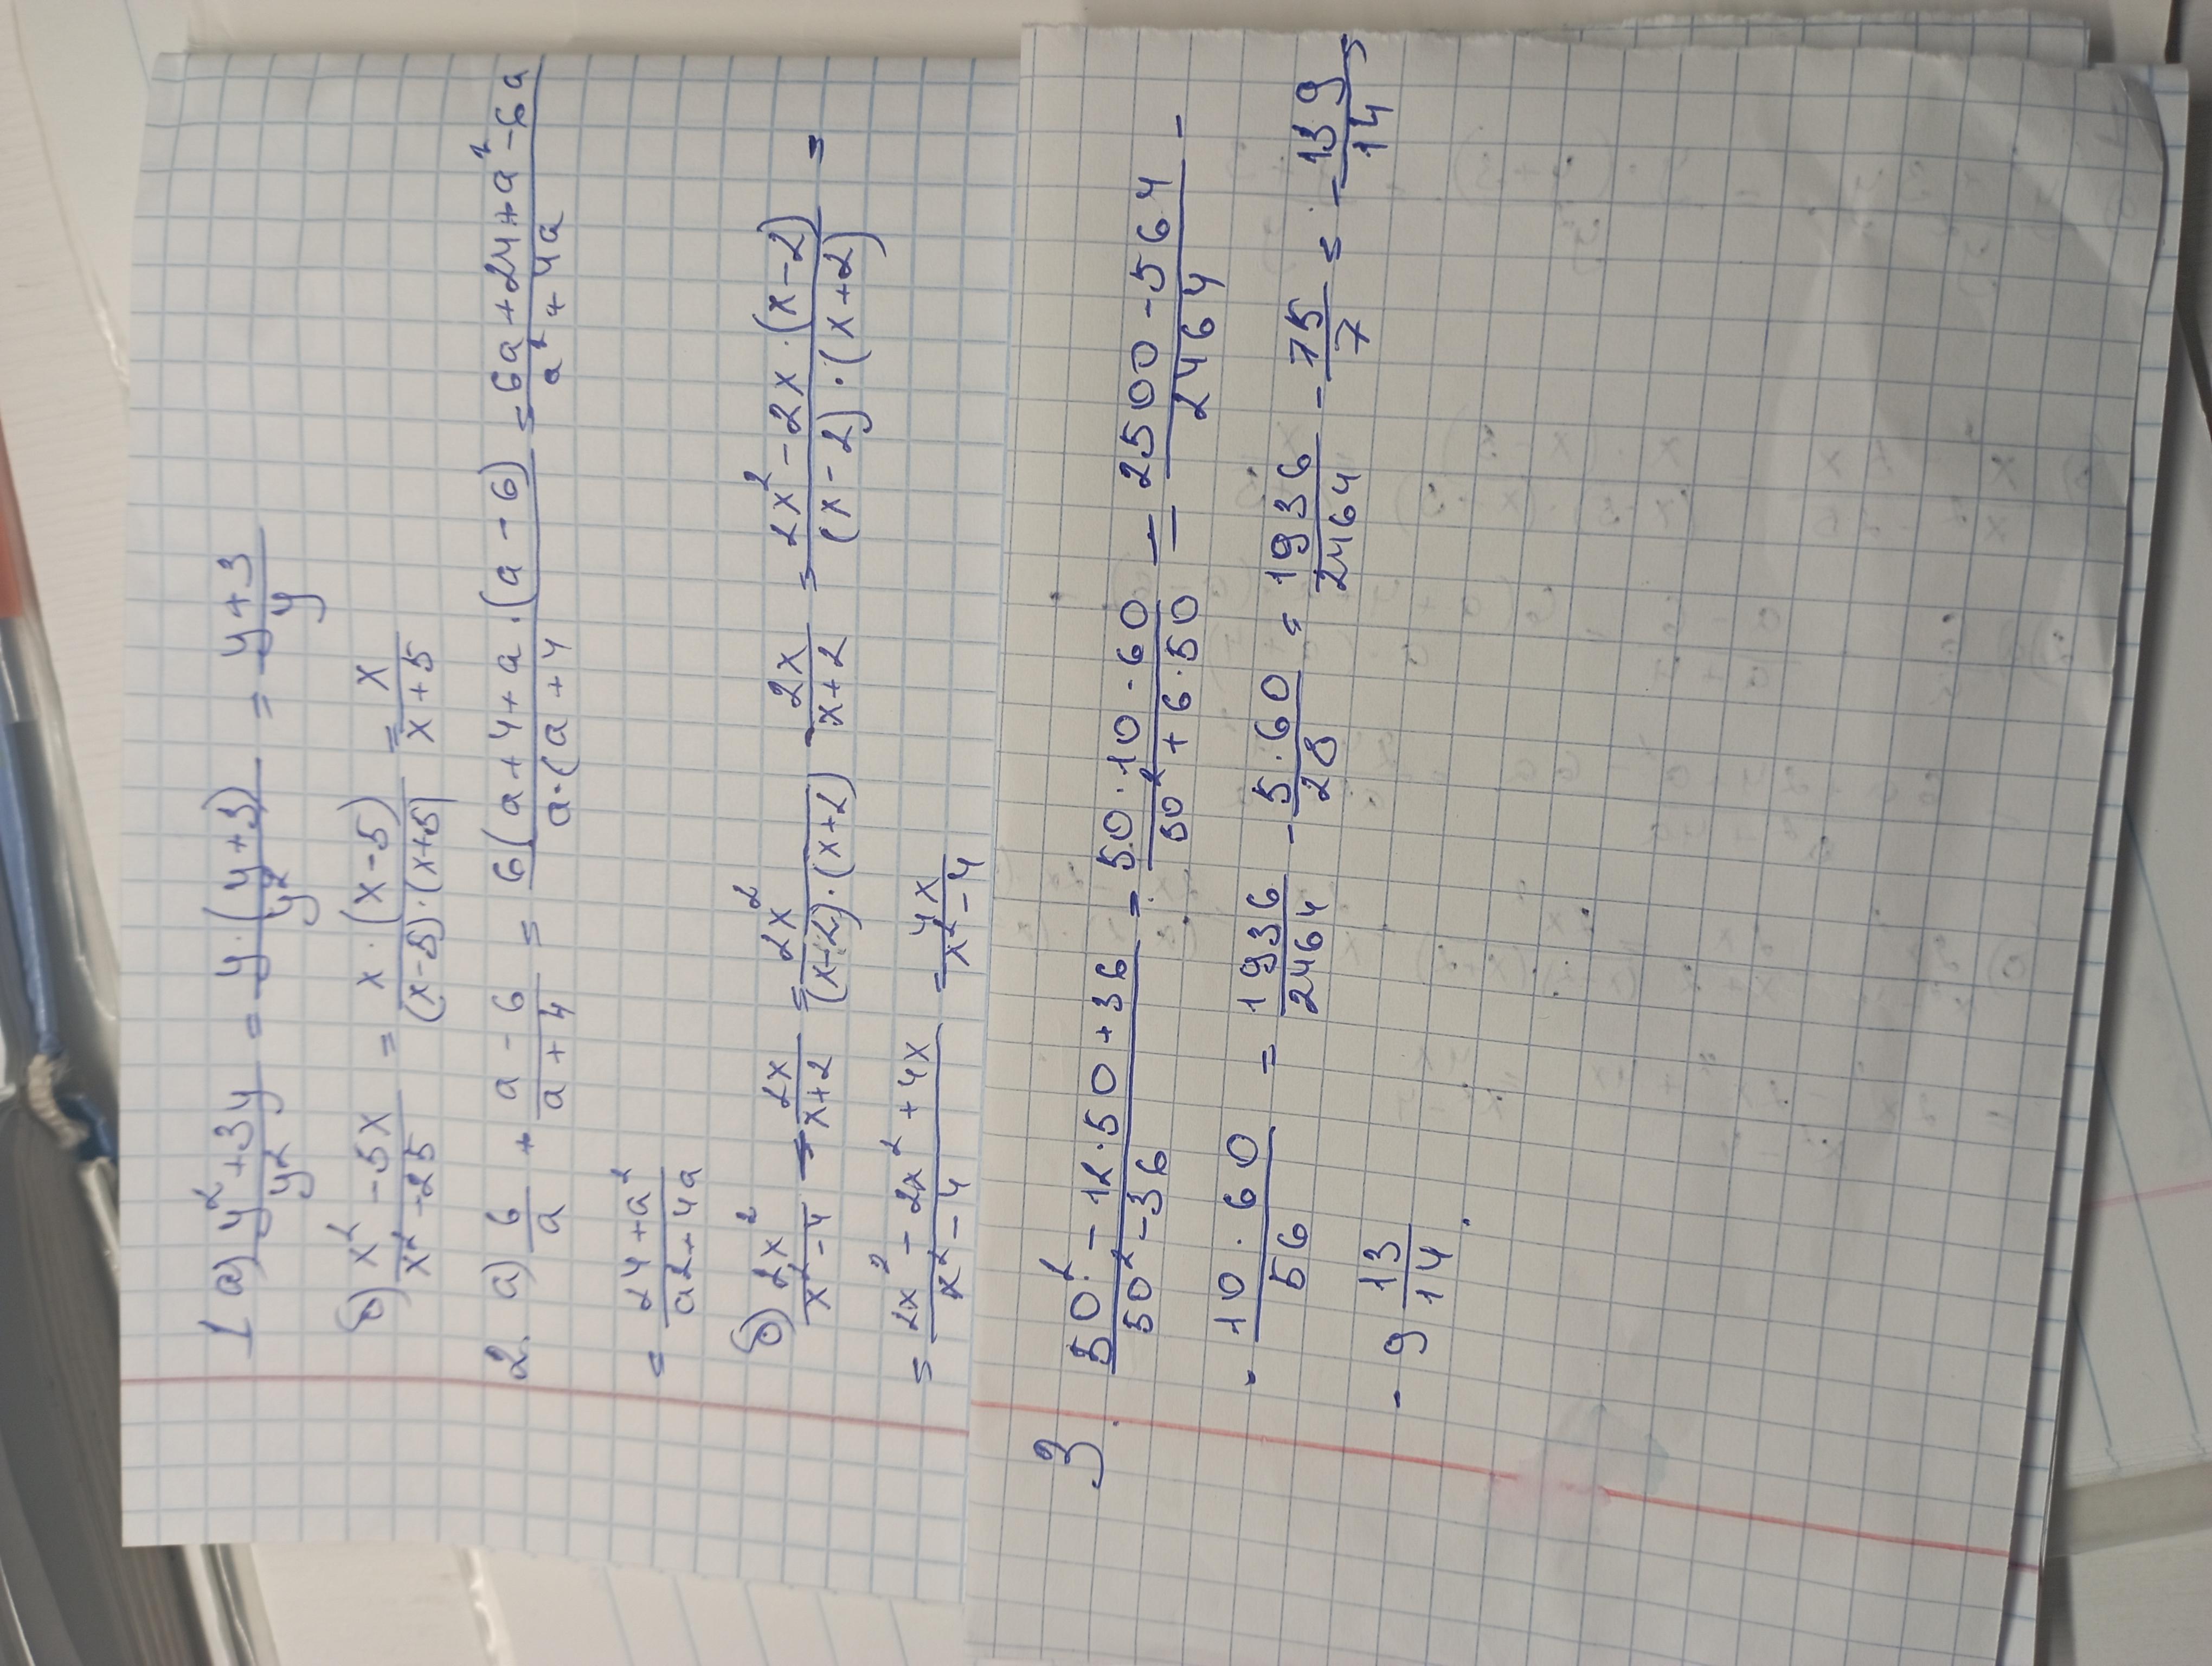 1 а) (y²+3y)/y² = (y·(y+3))/y² = (y+3)/y
б) (x²-5x)/(x²-25) = (x·(x-5))/((x-5)·(x+5)) = x/(x+5)
2. а) 6/a + (a-6)/(a+4) = (6(a+4+a·(a-6))/(a·(a+4) = (6a+24+a²-6a)/(a²+4a)
= (24+a²)/(a2+4a)
б) 2x²/(x²-4) - 2x/(x+2) = 2x²/((x-2)·(x+2)) - 2x/(x+2) = (2x²-2x·(x-2))/((x-2)·(x+2)) =
= (2x²-2x²+4x)/(x²-4) = 4x/(x²-4)
3. (50²-12·50+36)/(50²-36) = (50·10·60)/(50²+6·50) = (2500-564)/2464 -
- (10·60)/56 = 1936/2464 - (5·60)/28 = 1936/2464 - 75/7 = -139/14 =
- 9 13/14.